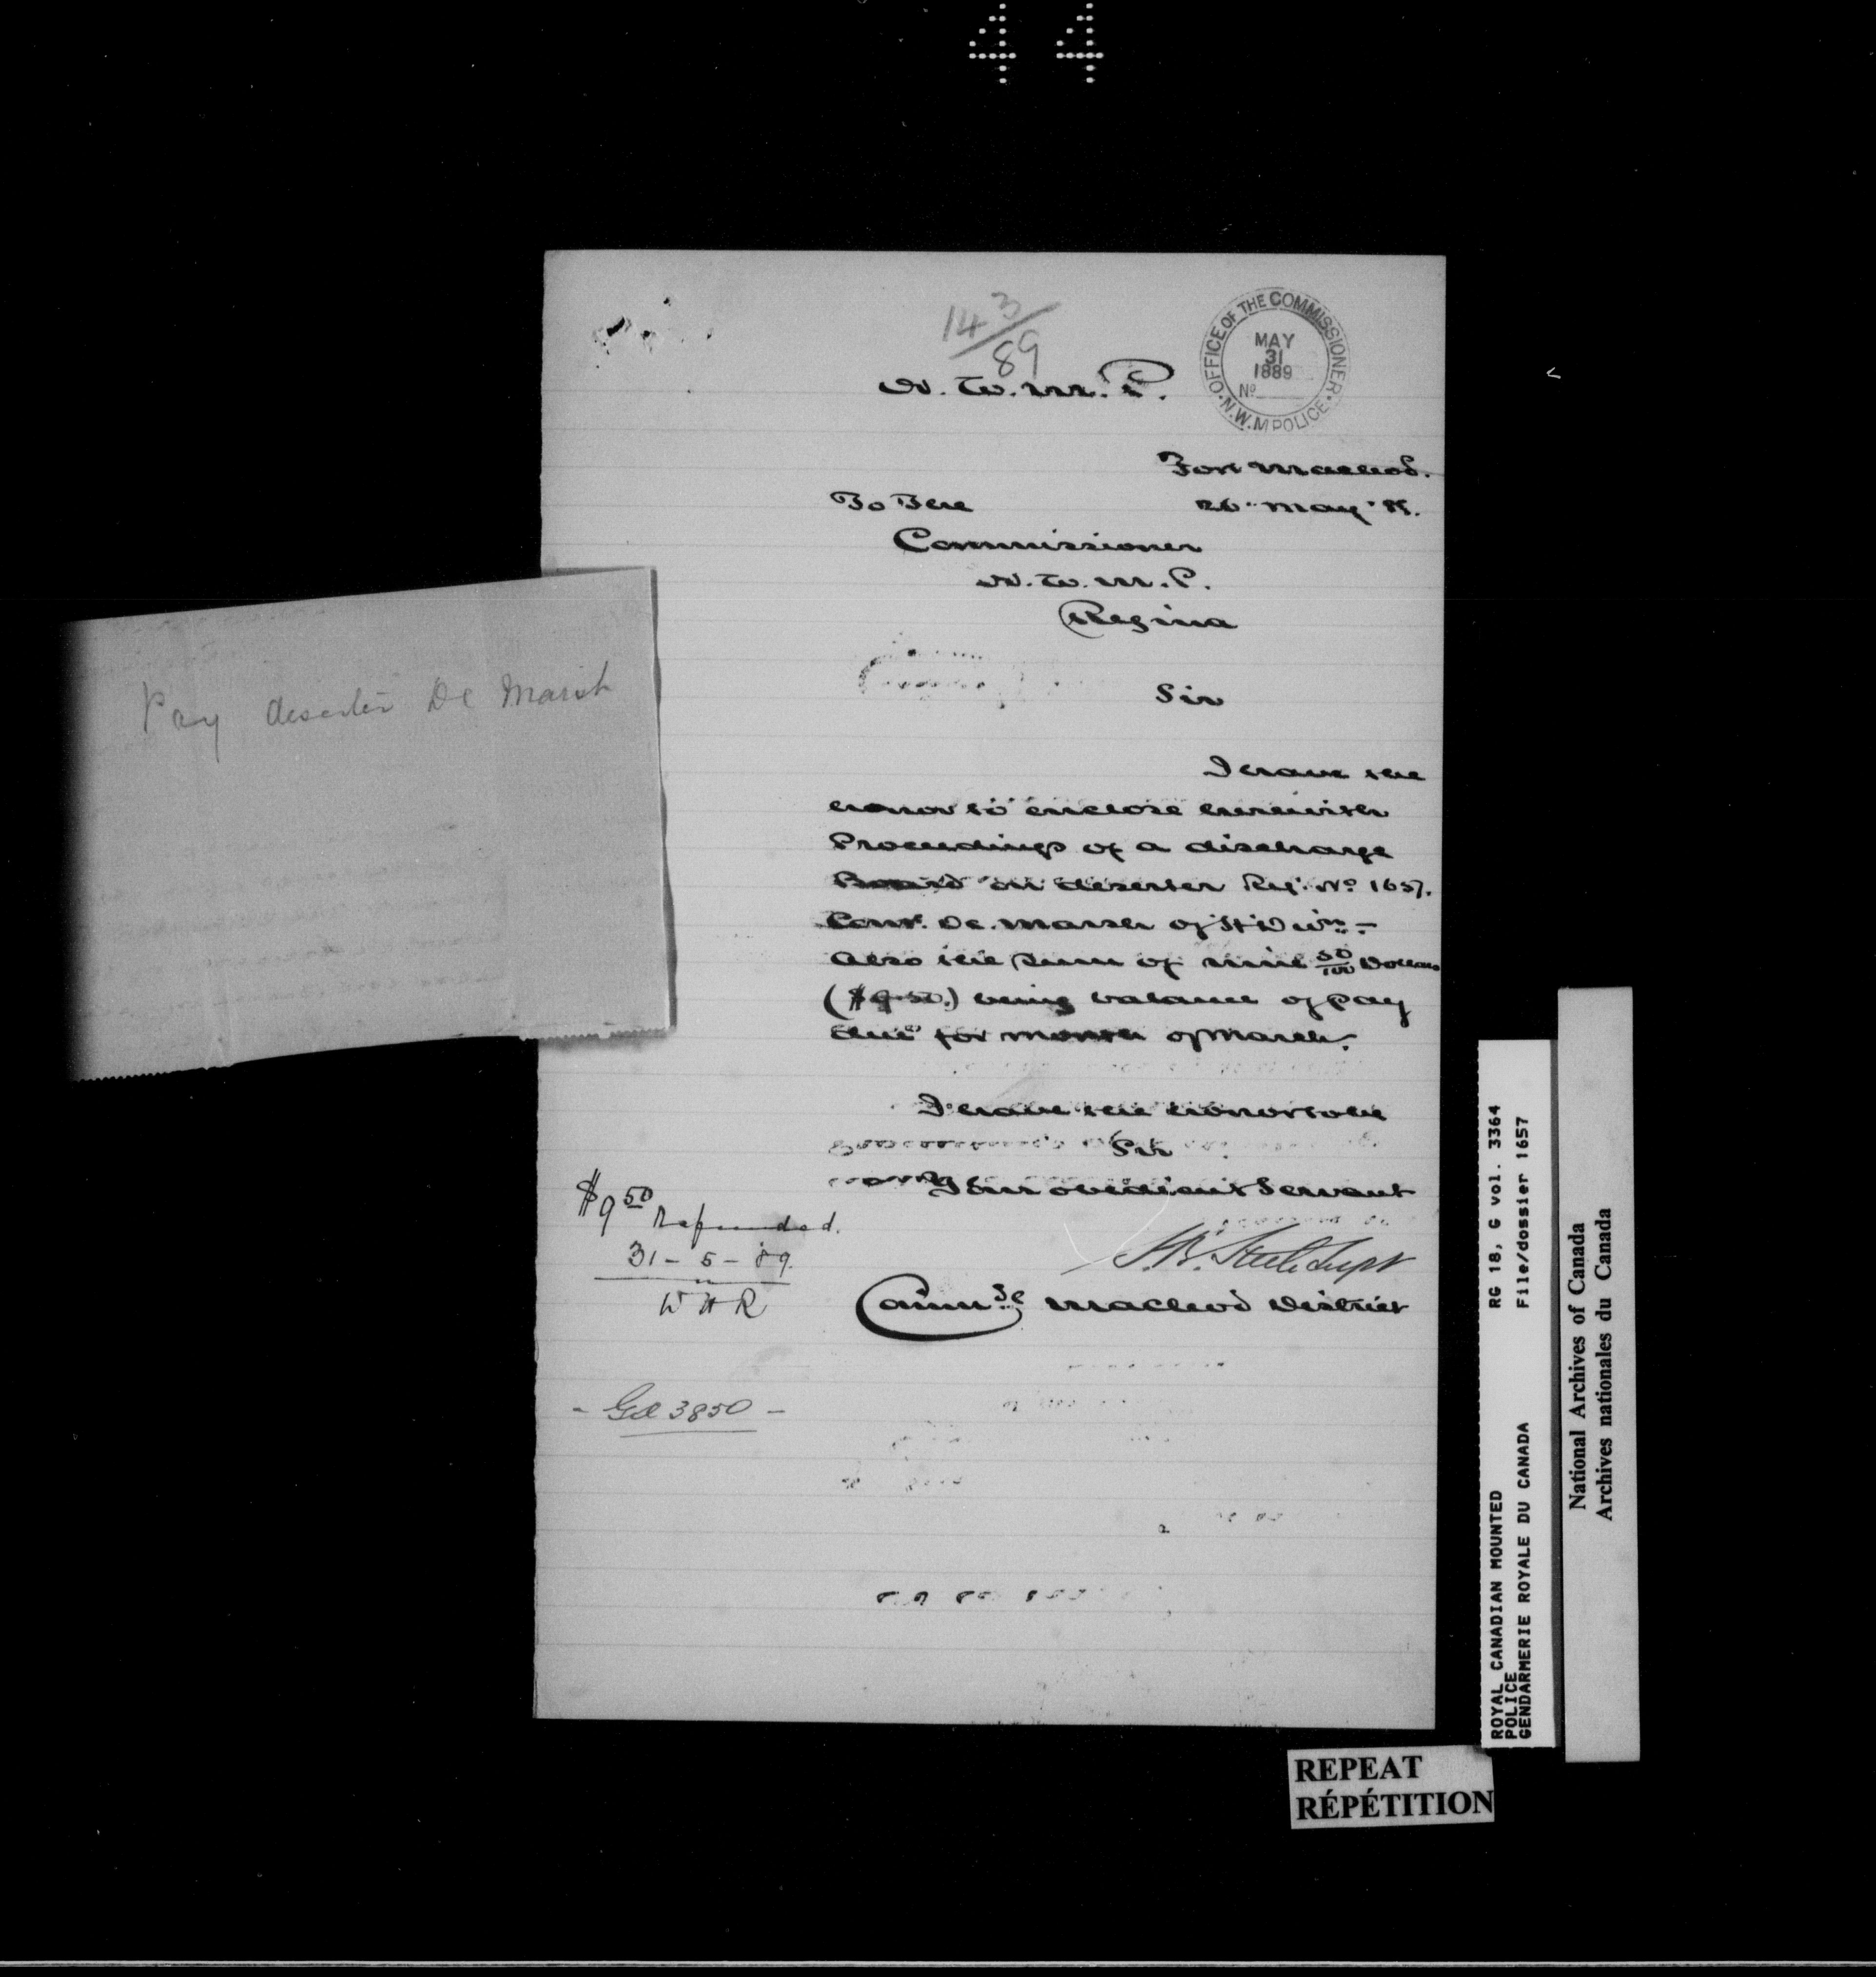 44
143/89
OFFICE OF THE COMMISSIONER
MAY
31
1889
No
N.W.M POLICE
N. W. M. P.
Fort Macleod.
To The
26 May 89.
Commissioner
N. W. M. P.
Regina
Sir
I have the
honor to enclose herewith
Proceedings of a discharge
Board on deserter Reg. No 1657.
Const. De Marsh of "H" Divn. -
Also the sum of nine 50/100 Dollars
($9.50.) being balance of pay
due for month of March.
I have the honor to be
Sir
Your obedient Servant
S.B. Steele Supt
Commdg Macleod District
Pay deserter De Marsh
$9 50 Refunded.
31 - 5 - 89.
W H R
3850
RG 18, G vol. 3364
File/dossier 1657
ROYAL CANADIAN MOUNTED
POLICE
GENDARMERIE ROYALE DU CANADA
National Archives of Canada
Archives nationales du Canada
REPEAT
RÉPÉTITION